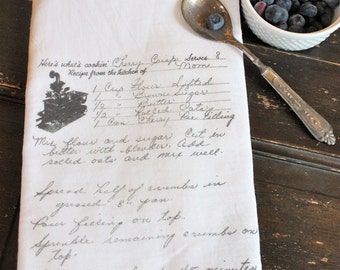 Here's what's cookin' Cherry Crisp Serves 8
Recipe from the kitchen of Mom
1 Cup Flour Sifted
Brown Sugar
1/2 " Butter
1/2 " Rolled Oats
1 Can Cherry Pie Filling
Mix flour and sugar Cut in
butter with blender. Add
rolled oats and mix well.
Spread half of crumbs in
greased 8" pan
Pour filling on top.
Sprinkle remaining crumbs on
top.
40 minutes